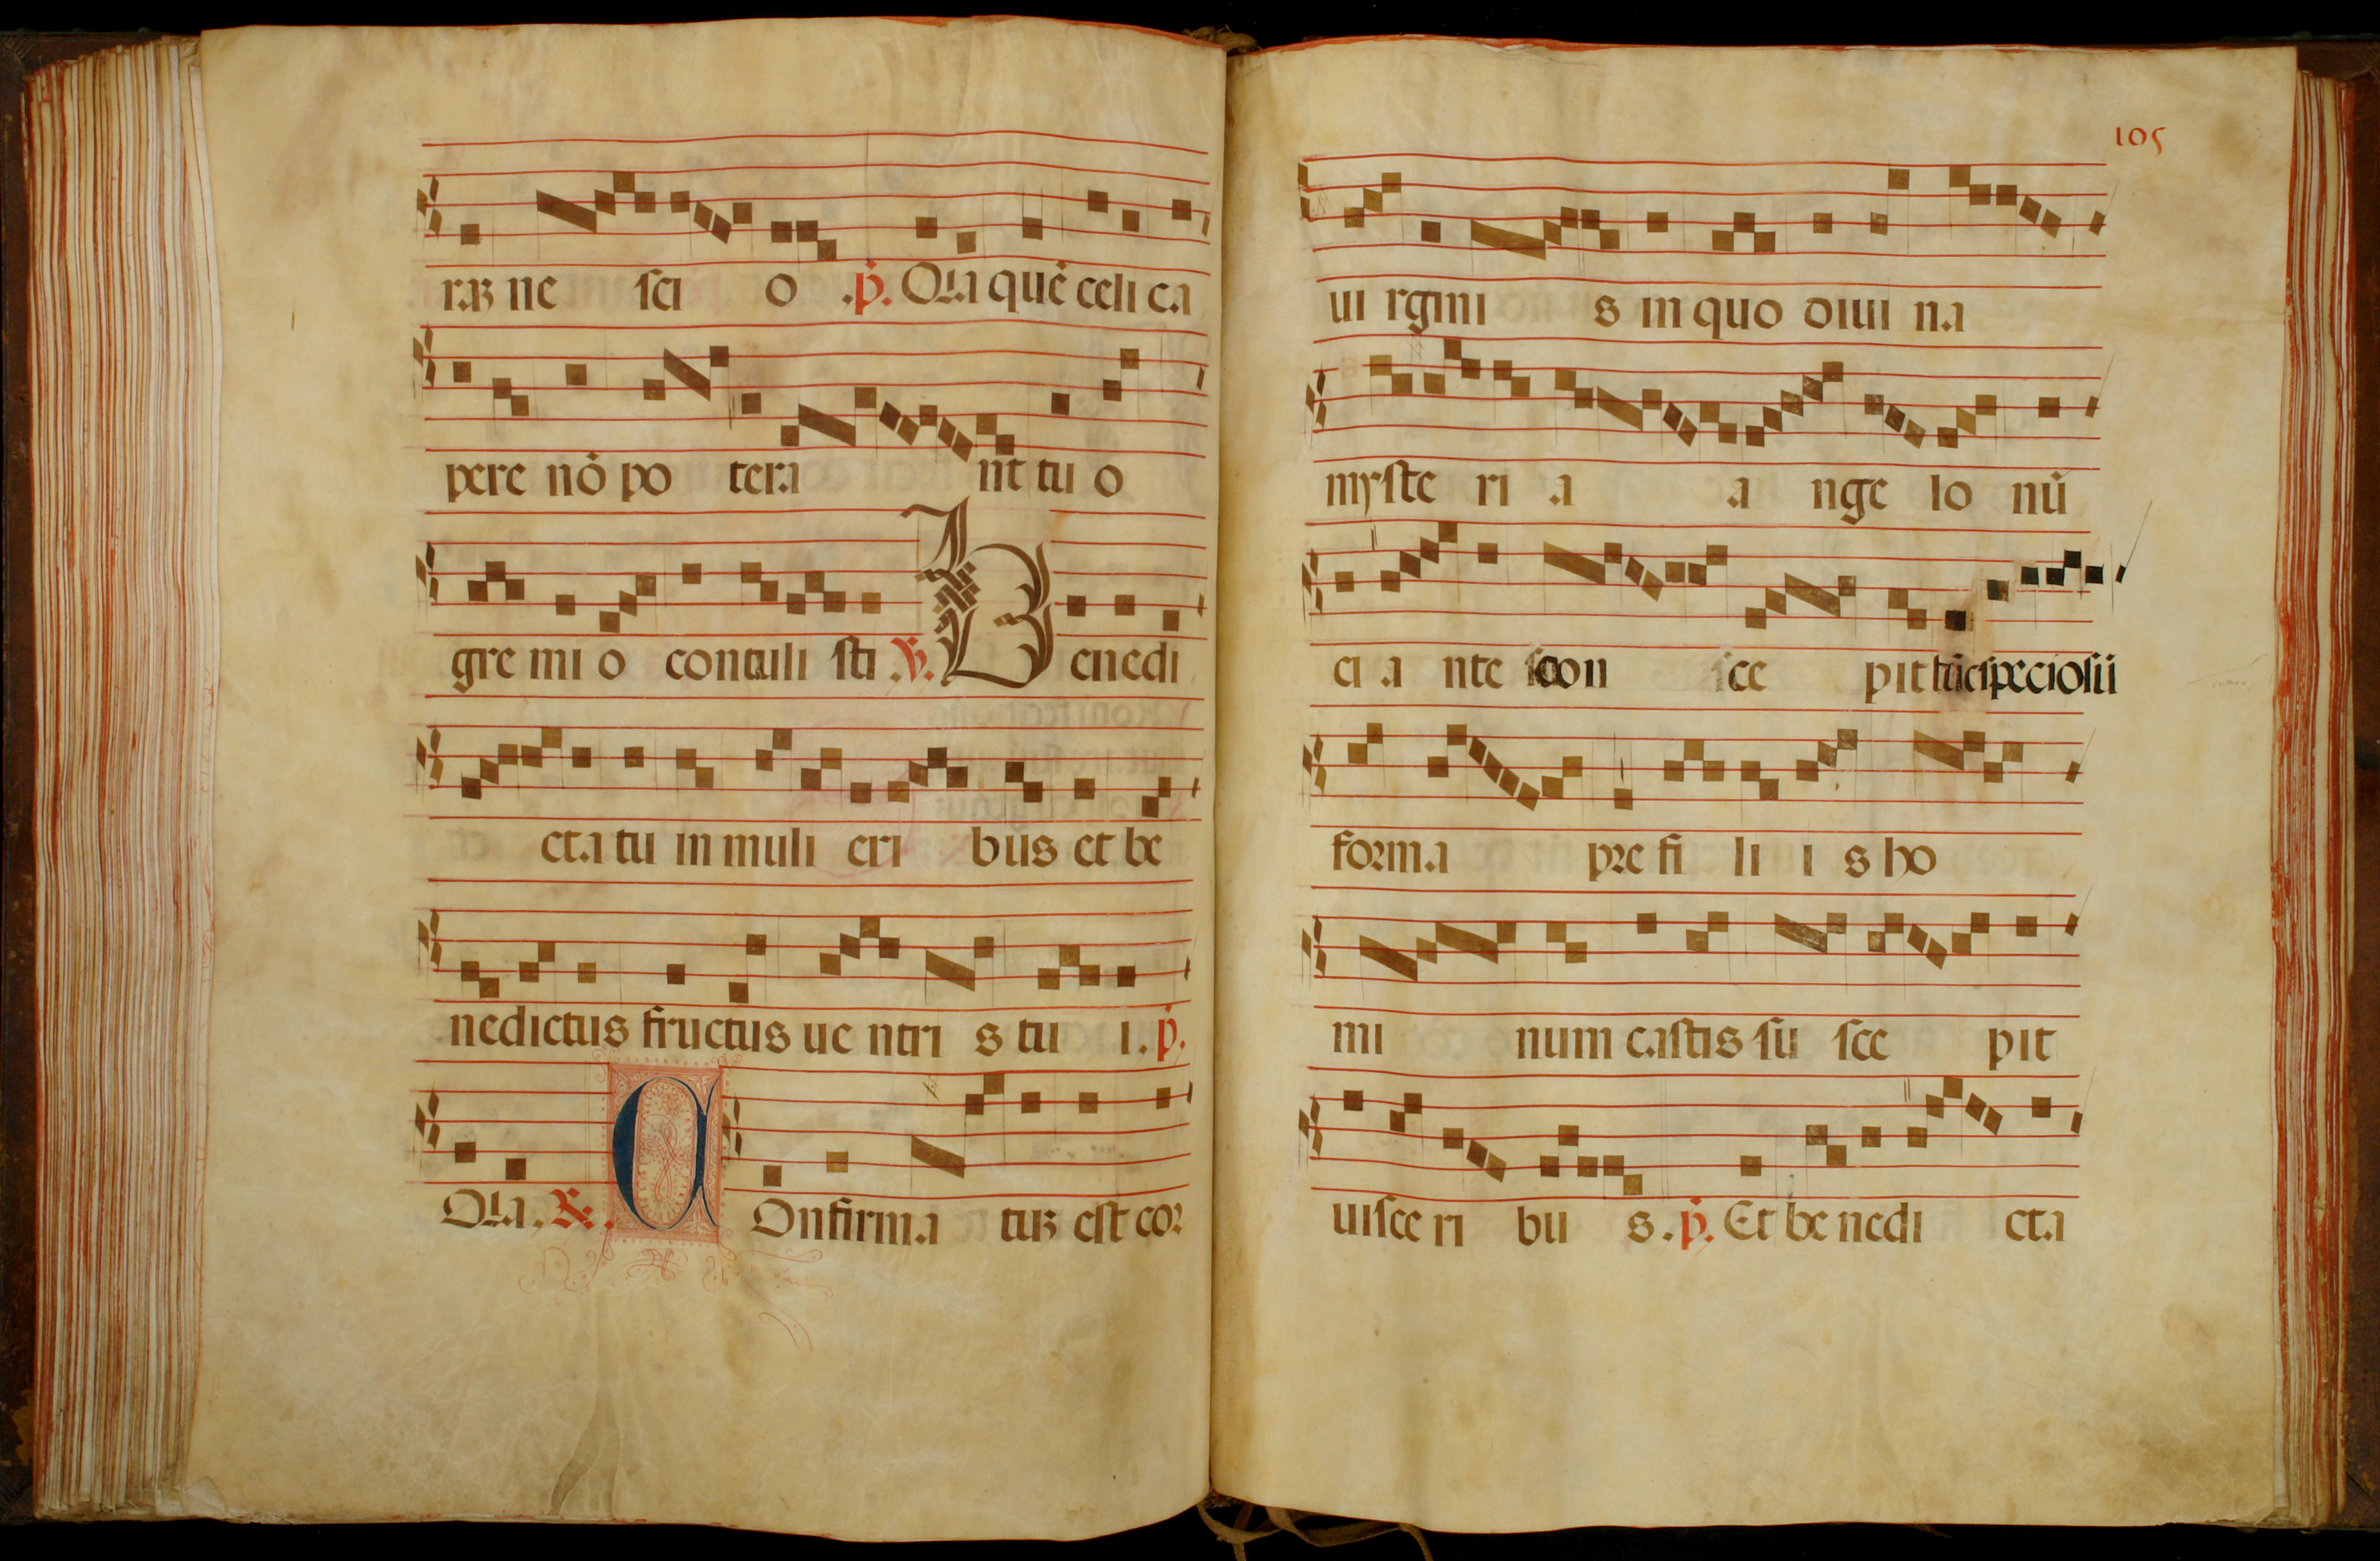 raꝫ ne sci o .p̄. Qꝛa quē celi ca
pere nō po tera nt tu o
gre mi o contuli sti ℣. Benedi
cta tu in muli eri bus et be
nedictus fructus ue ntri s tu i. p̄.
Qꝛa. ℟. COnfirma tuꝫ est cor
105
ui rgini s in quo diui na
myste ri a a nge lo nū
ci a nte scon sce pit tūc speciosū
forma pre fi li i s ho
mi num castis su sce pit
uisce ri bu s. p̄. Et be nedi cta